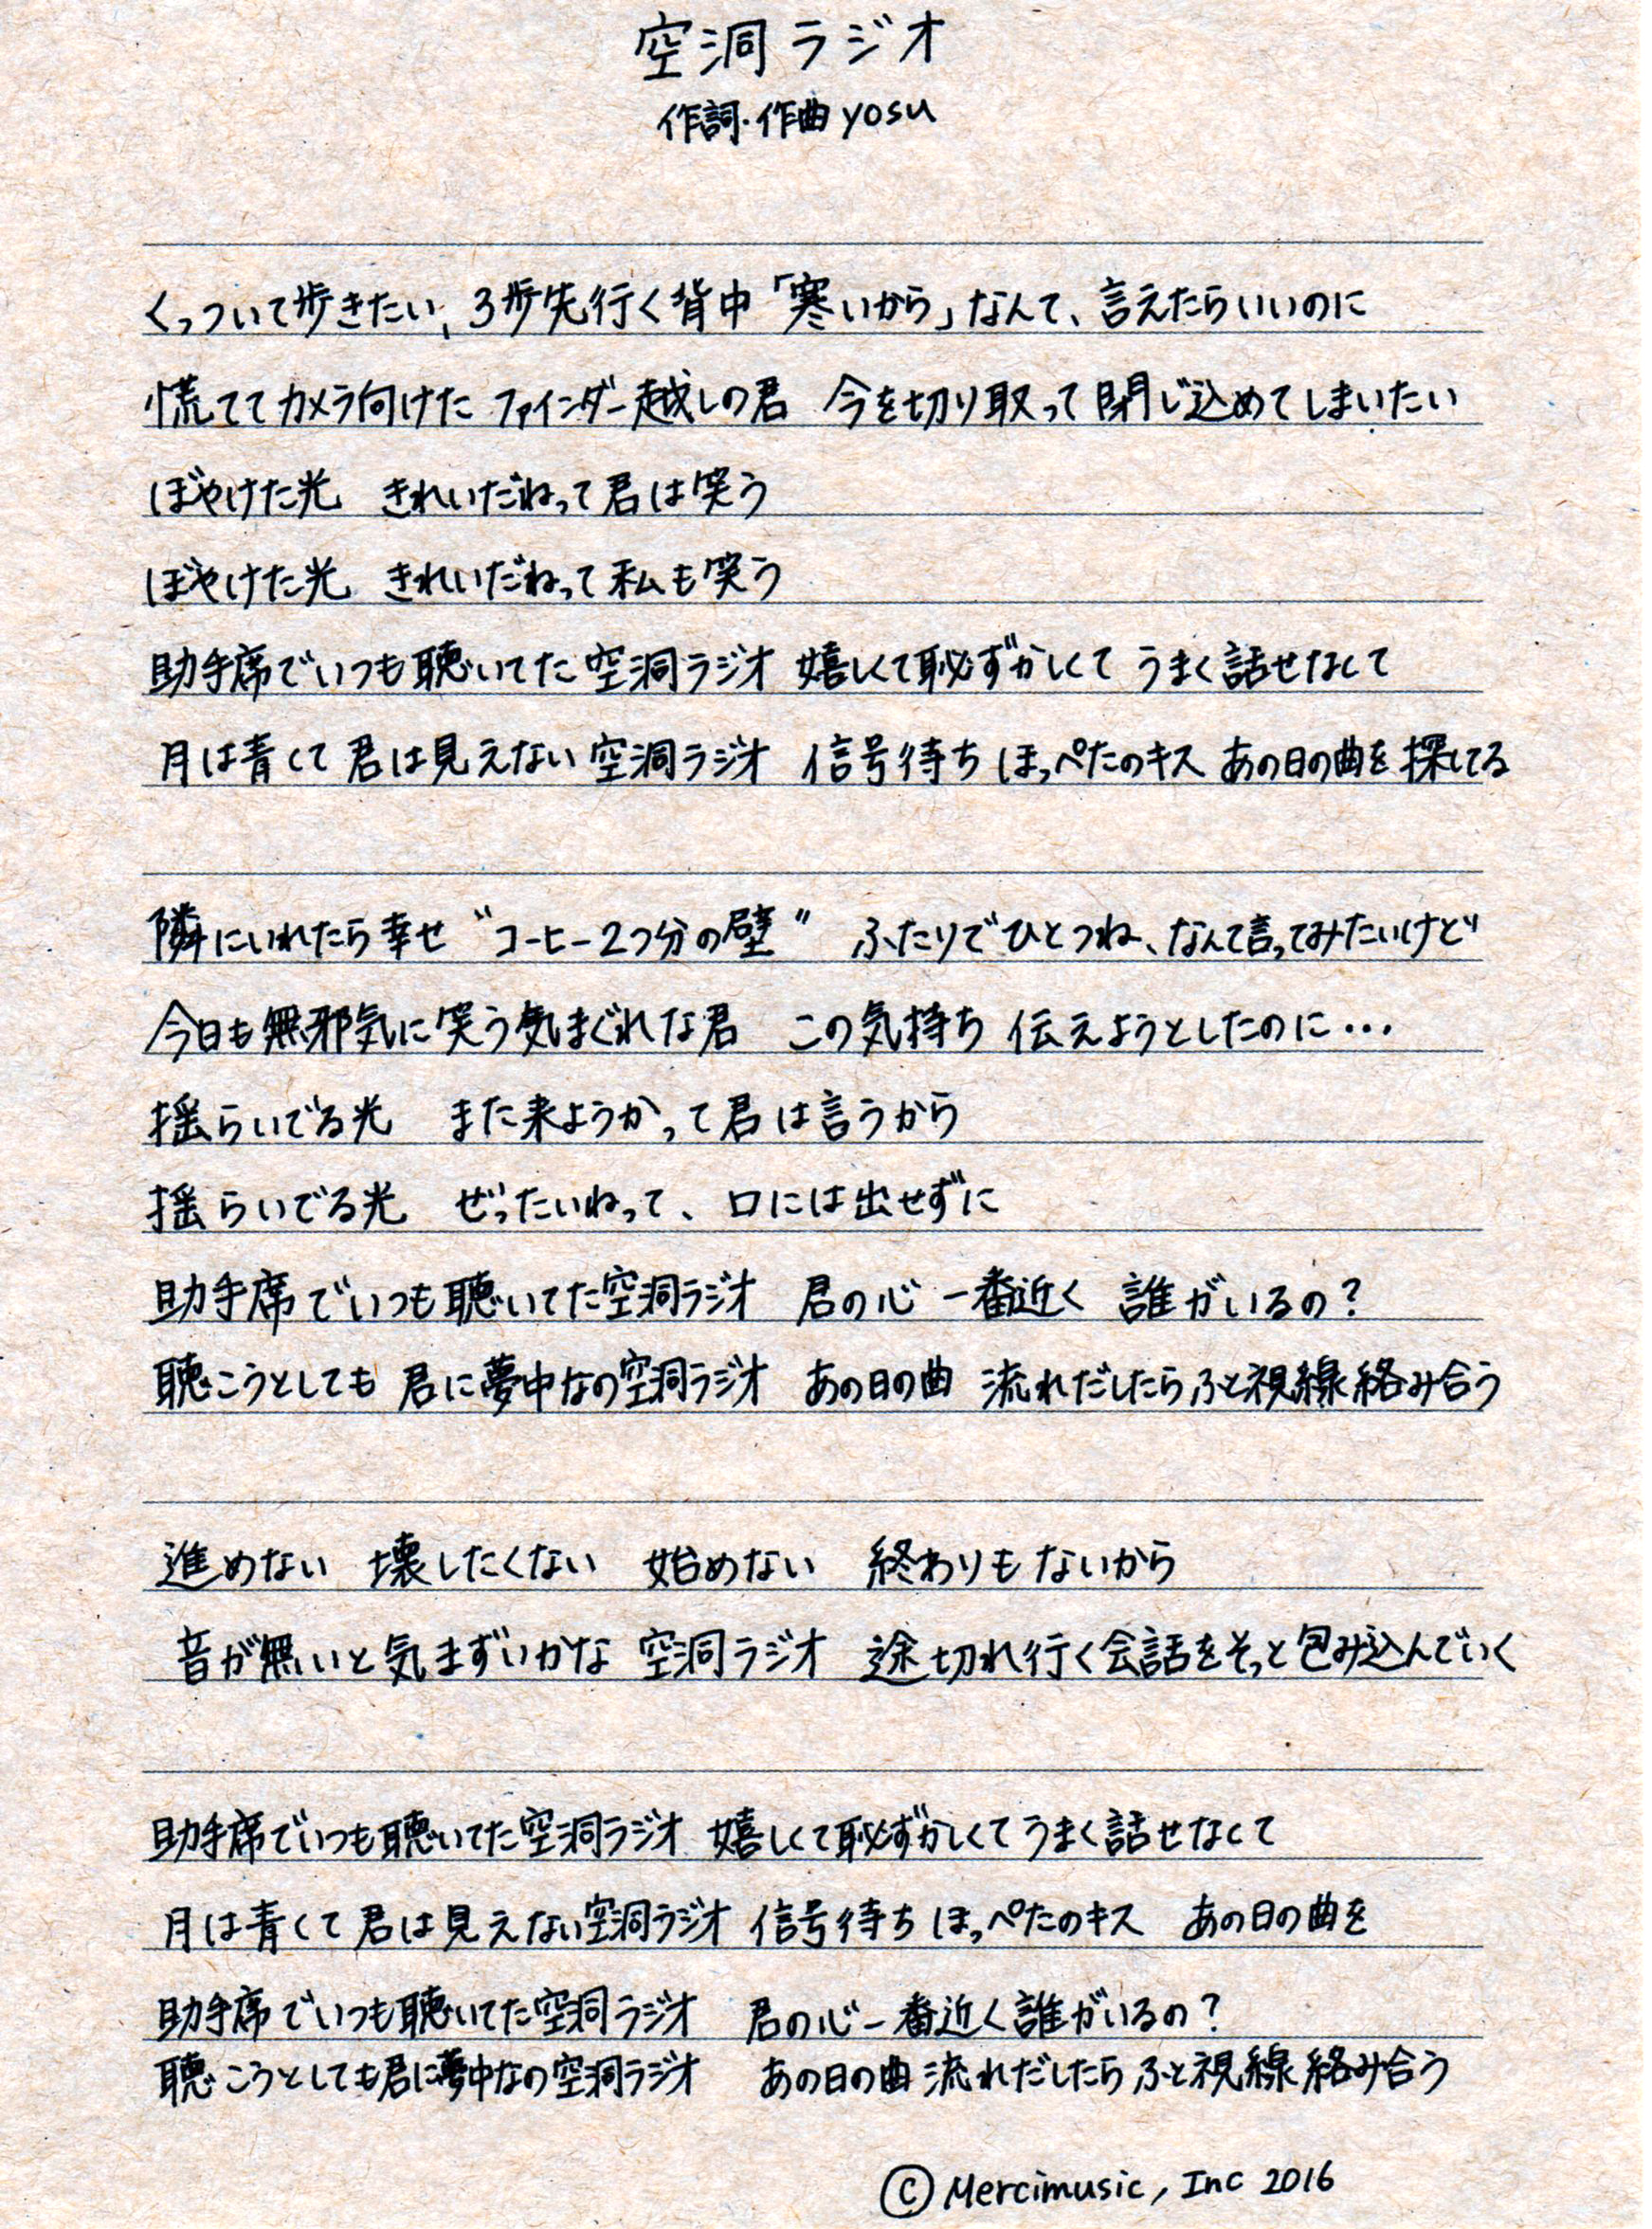 空洞ラジオ
作詞・作曲 yosu
くっついて歩きたい、3歩先行く背中「寒いから」なんて、言えたらいいのに
慌ててカメラ向けた ファインダー越しの君 今を切り取って閉じ込めてしまいたい
ぼやけた光 きれいだねって君は笑う
ぼやけた光 きれいだねって私も笑う
助手席でいつも聴いてた空洞ラジオ 嬉しくて恥ずかしくて うまく話せなくて
月は青くて君は見えない空洞ラジオ 信号待ち ほっぺたのキス あの日の曲を探してる
隣にいれたら幸せ“コーヒー2つ分の壁” ふたりでひとつね、なんて言ってみたいけど
今日も無邪気に笑う気まぐれな君 この気持ち 伝えようとしたのに…
揺らいでる光 また来ようかって君は言うから
揺らいでる光 ぜったいねって、口には出せずに
助手席でいつも聴いてた空洞ラジオ 君の心 一番近く 誰がいるの?
聴こうとしても 君に夢中なの空洞ラジオ あの日の曲 流れだしたらふと視線絡み合う
進めない 壊したくない 始めない 終わりもないから
音が無いと気まずいかな 空洞ラジオ 途切れ行く会話をそっと包み込んでいく
助手席でいつも聴いてた空洞ラジオ 嬉しくて恥ずかしくてうまく話せなくて
月は青くて君は見えない空洞ラジオ 信号待ち ほっぺたのキス あの日の曲を
助手席でいつも聴いてた空洞ラジオ 君の心一番近く誰がいるの?
聴こうとしても君に夢中なの空洞ラジオ あの日の曲 流れだしたら ふと視線絡み合う
© Mercimusic, Inc 2016